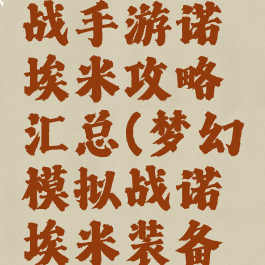 战手游诺
埃米攻略
汇总(梦幻
模拟战诺
埃米装备